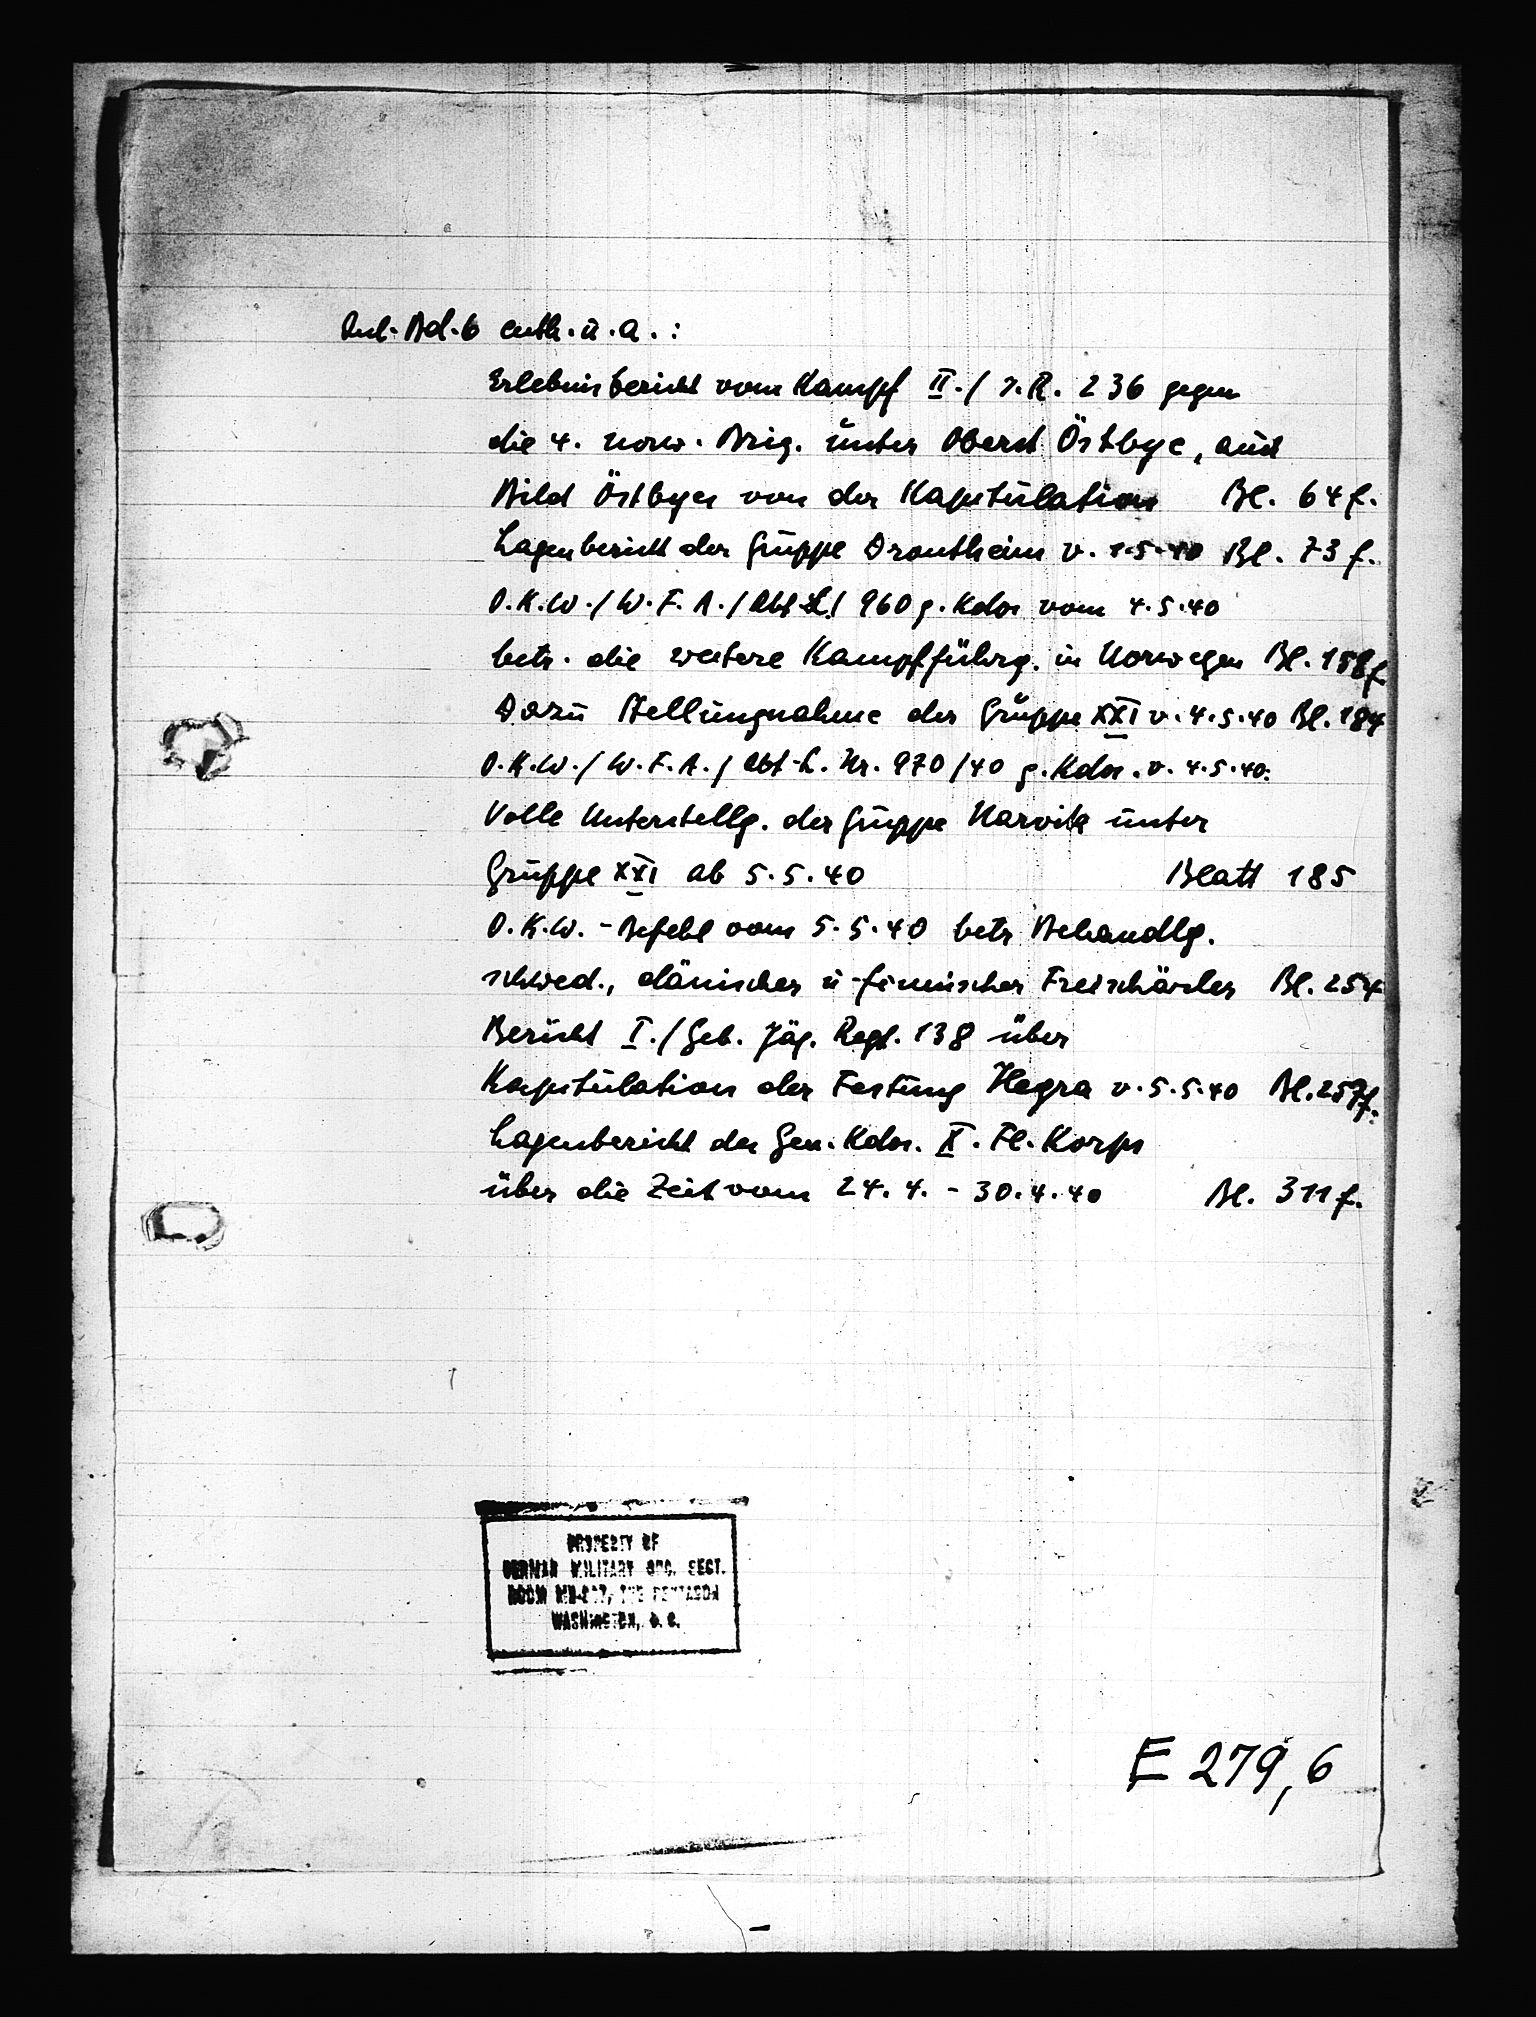 Anl. Bd. 6 enth. u. a.:
Erlebnisbericht vom Kampf II./ I.R. 236 gegen
die 4. norw. Brig. unter Oberst Östbye, aus
Bild Östbyes von der Kapitulation Bl. 64 f.
Lagenbericht der Gruppe Drontheim v. 1.5.40 Bl. 73 f.
O.K.W./ W.F.A./ Abt L/ 960 g. Kdos vom 4.5.40
betr. die weitere Kampfführg. in Norwegen Bl. 158 f
Dazu Stellungnahme der Gruppe XXI v. 4.5.40 Bl. 184
O.K.W./ W.F.A./ Abt. L. Nr. 970/40 g. Kdos. v. 4.5.40:
Volle Unterstellg. der Gruppe Narvik unter
Gruppe XXI ab 5.5.40 Blatt 185
O.K.W. - Befehl vom 5.5.40 betr Behandlg.
schwed., dänischer u finnischer Freischärler Bl. 254
Bericht I./ Geb. Jäg. Regt. 138 über
Kapitulation der Festung Hegra v. 5.5.40 Bl. 257 f.
Lagenbericht des Gen. Kdos. X. Fl. Korps
über die Zeit vom 24.4. - 30.4.40 Bl. 311 f.
PROPERTY OF
GERMAN MILITARY DOC. SECT.
ROOM THE PENTAGON
WASHINGTON, D. C.
E 279,6